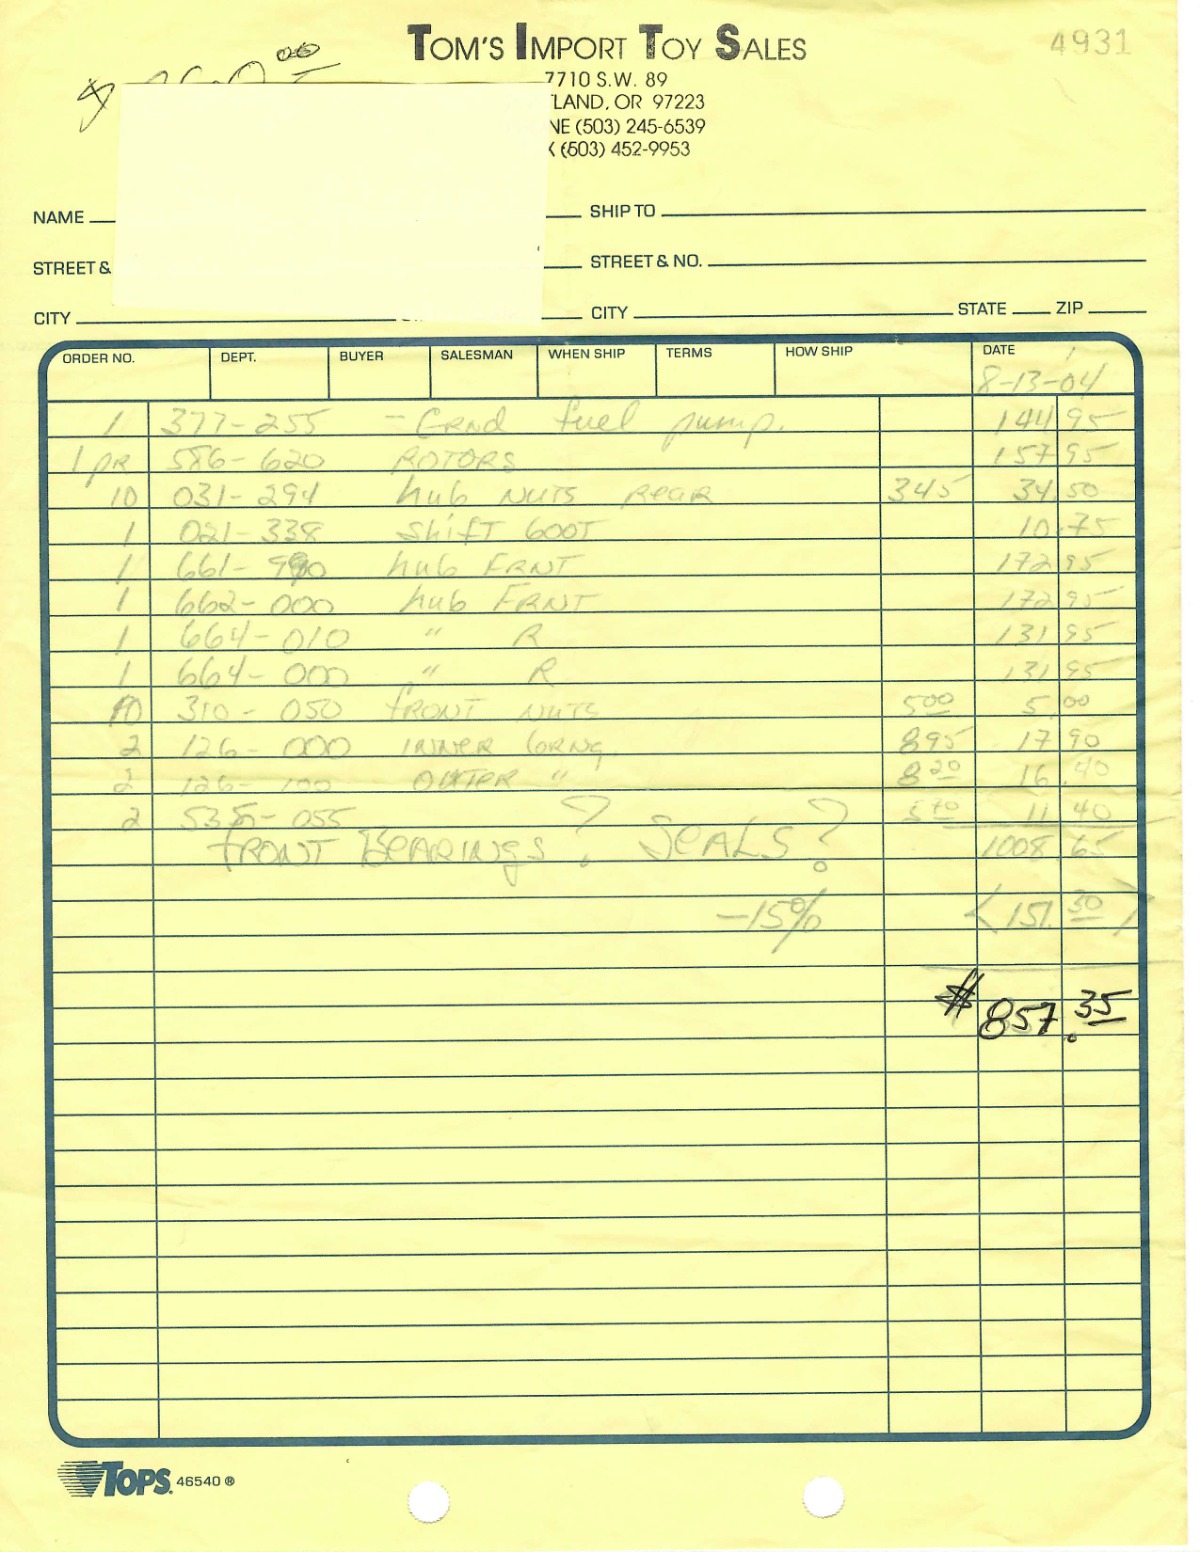 00
TOM'S IMPORT TOY SALES
4931
$
7710 S.W. 89
TLAND, OR 97223
NE (503) 245-6539
(503) 452-9953
NAME SHIP TO
STREET & STREET & NO.
CITY CITY STATE ZIP
ORDER NO. DEPT. BUYER SALESMAN WHEN SHIP TERMS HOW SHIP DATE
8-13-04
1 377-255 - GRND fuel pump. 144 95
1 PR 586-620 ROTORS 157 95
10 031-294 hub NUTS REAR 345 34.50
1 021-338 Shift BOOT 10.75
1 661-990 hub FRNT 172 95
1 662-000 hub FRNT 172 95
1 664-010 " R 131 95
1 664-000 " R 131 95
10 310-050 FRONT NUTS 500 5.00
2 126-000 INNER BRNG. 895 17 90
2 126-100 OUTER " 820 16.40
2 535-055 570 11 40
FRONT BEARINGS? SEALS? 1008.65
-15% <151.30>
$857.35
TOPS 46540 ®